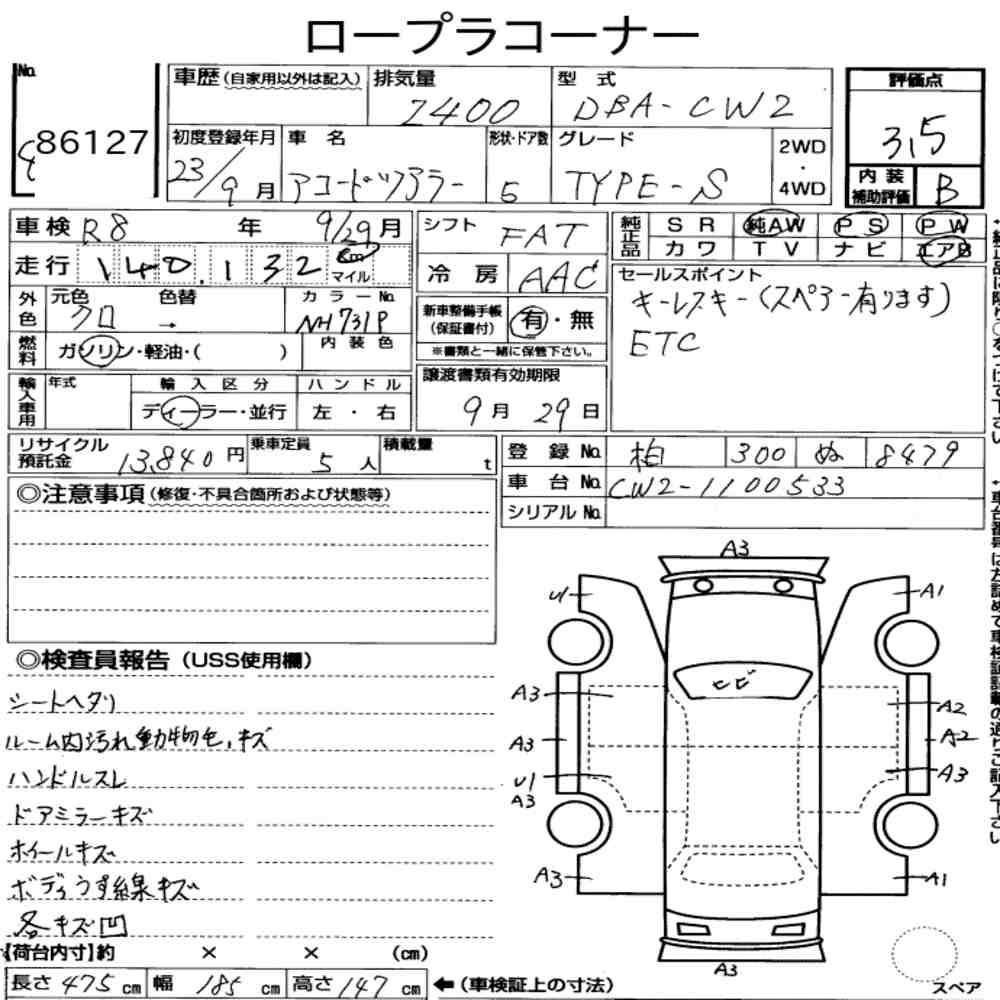 ロープラコーナー
No. 86127
車歴(自家用以外は記入) 排気量 2400 型式 DBA-CW2
初度登録年月 23/9月 車名 アコードツアラー 形状・ドア数 5 グレード TYPE-S 2WD・4WD
評価点 3.5
内装補助評価 B
車検 R8年 9/29月 シフト FAT
走行 140,132 km マイル 冷房 AAC
純正品 SR 純AW PS PW
カワ TV ナビ エアB
外色 元色 クロ 色替 → カラーNo. NH731P
燃料 ガソリン・軽油・( ) 内装色
新車整備手帳(保証書付) 有・無
※書類と一緒に保管下さい。
セールスポイント
キーレスキー(スペアー有ります)
ETC
輸入車用 年式 輸入区分 ディーラー・並行 ハンドル 左・右
譲渡書類有効期限 9月 29日
リサイクル預託金 13,840円 乗車定員 5人 積載量 t
登録No. 柏 300 ぬ 8479
車台No. CW2-1100533
シリアルNo.
◎注意事項(修復・不具合箇所および状態等)
◎検査員報告(USS使用欄)
シートヘタリ
ルーム内汚れ動物毛,キズ
ハンドルスレ
ドアミラーキズ
ホイールキズ
ボディうす線キズ
各キズ凹
A3
U1 A1
ヒビ
A3 A2
A3 A2
U1 A3
A3
A3 A1
A3
スペア
【荷台内寸】約 × × (cm)
長さ 475 cm 幅 185 cm 高さ 147 cm ←(車検証上の寸法)